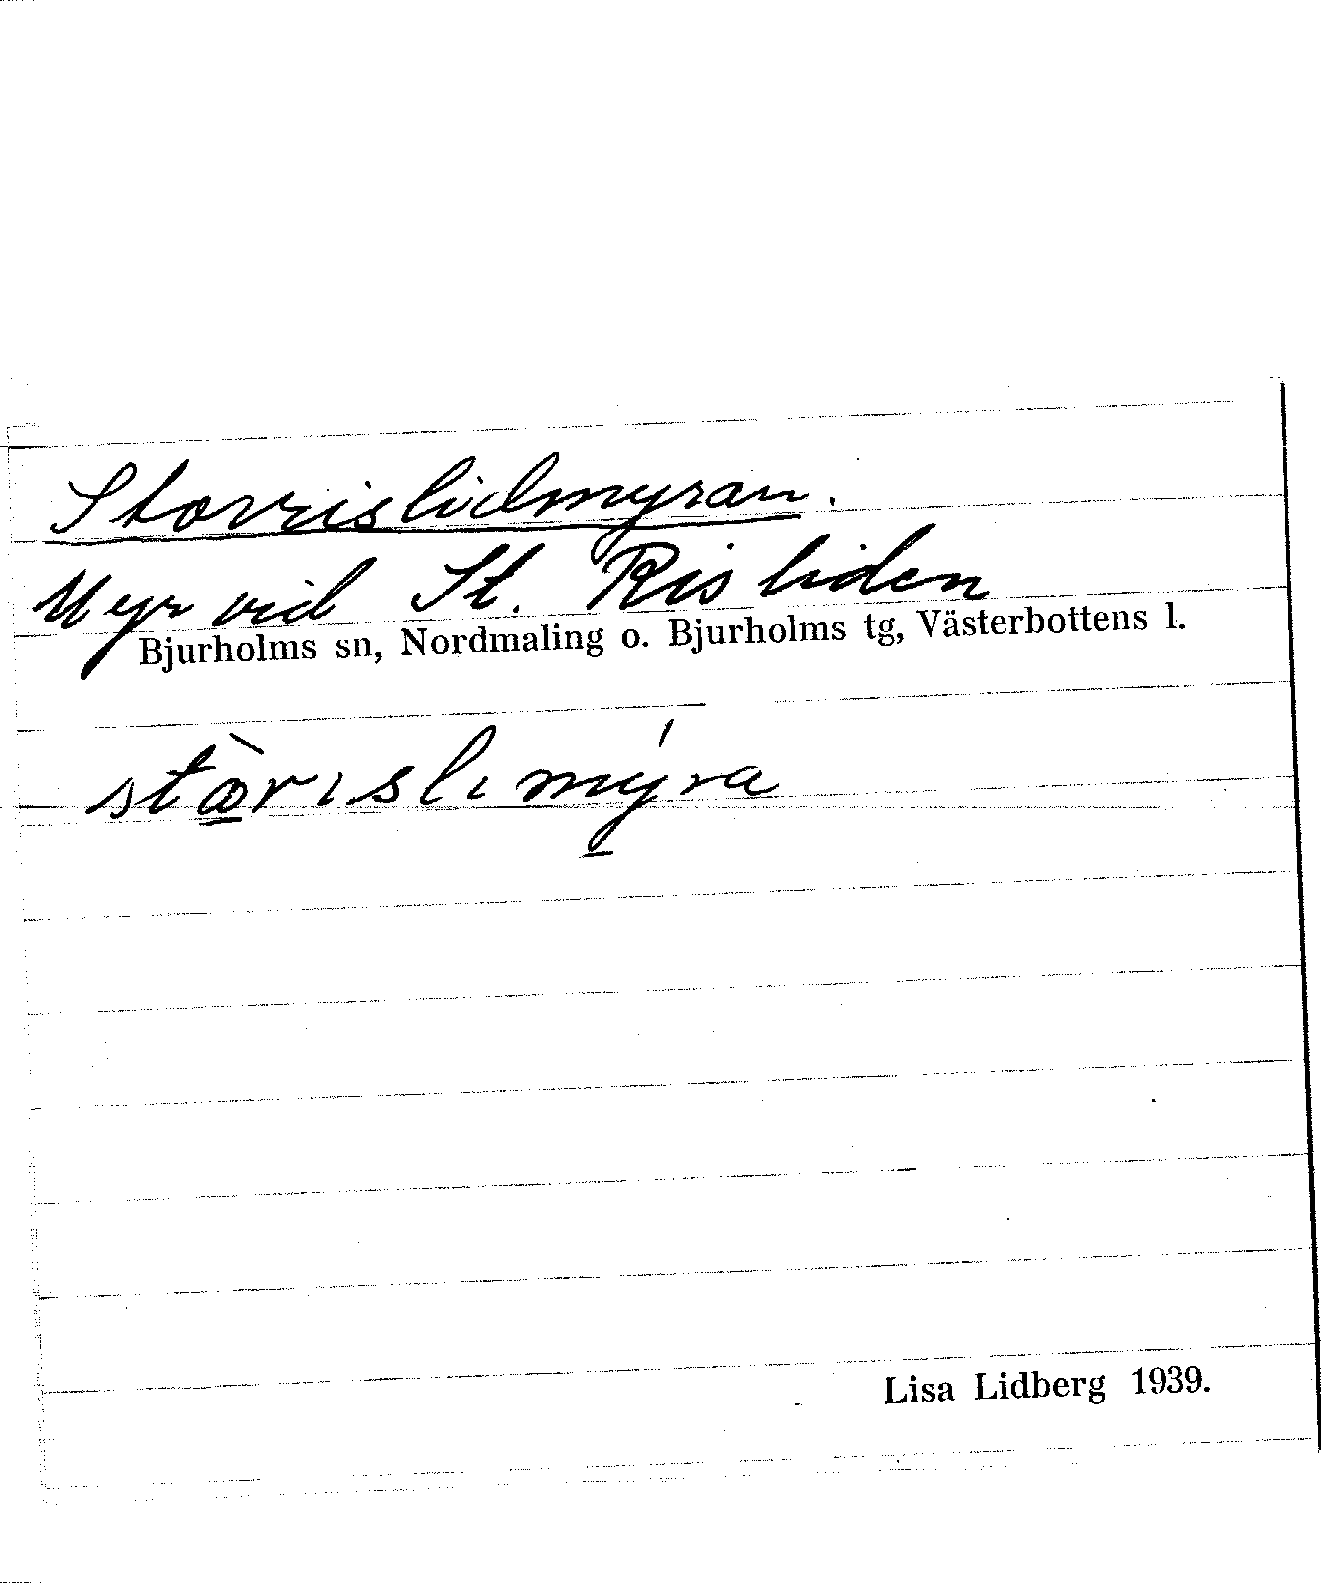 Storrislidmyran.
Myr vid St. Risliden
Bjurholms sn, Nordmaling o. Bjurholms tg, Västerbottens l.
stò̱rıslımý̱ra
Lisa Lidberg 1939.